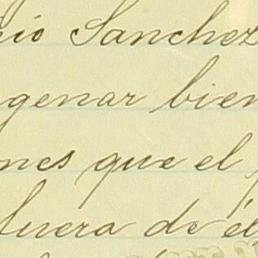 cio Sanchez
genar bien
nes que el
fuera de él